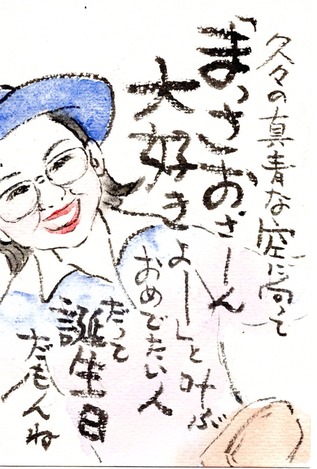 久々の真青な空に向って
「まっさおざーん
大好きよー」と叫ぶ
おめでたい人
だって
誕生日
だもんね